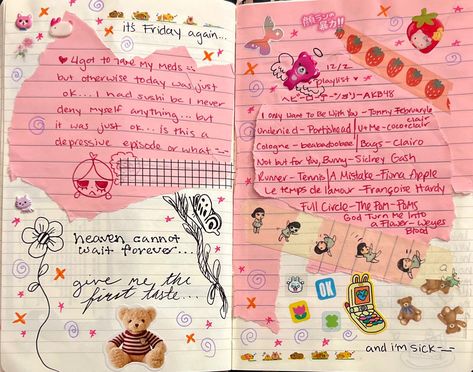 it's Friday again...
♥ 4got to take my Meds...
but otherwise today was just
ok... I had sushi bc I never
deny myself anything... but
it was just ok... is this a
depressive episode or what -_-
heaven cannot
wait forever...
give me the
first taste...
暴力!!
12/2
playlist
ヘビーローテーション-AKB48
I Only Want To Be With You - Tommy February6
Undenied - Portishead | U+Me - Coco & Clair Clair
Cologne - beabadoobee | Bags - Clairo
Not but For You, Bunny - Sidney Gish
Runner - Tennis | A Mistake - Fiona Apple
Le temps de l'amour - Françoise Hardy
Full Circle - The Pom-Poms
God Turn Me Into
a Flower - Weyes
Blood
OK
and i'm sick -_-